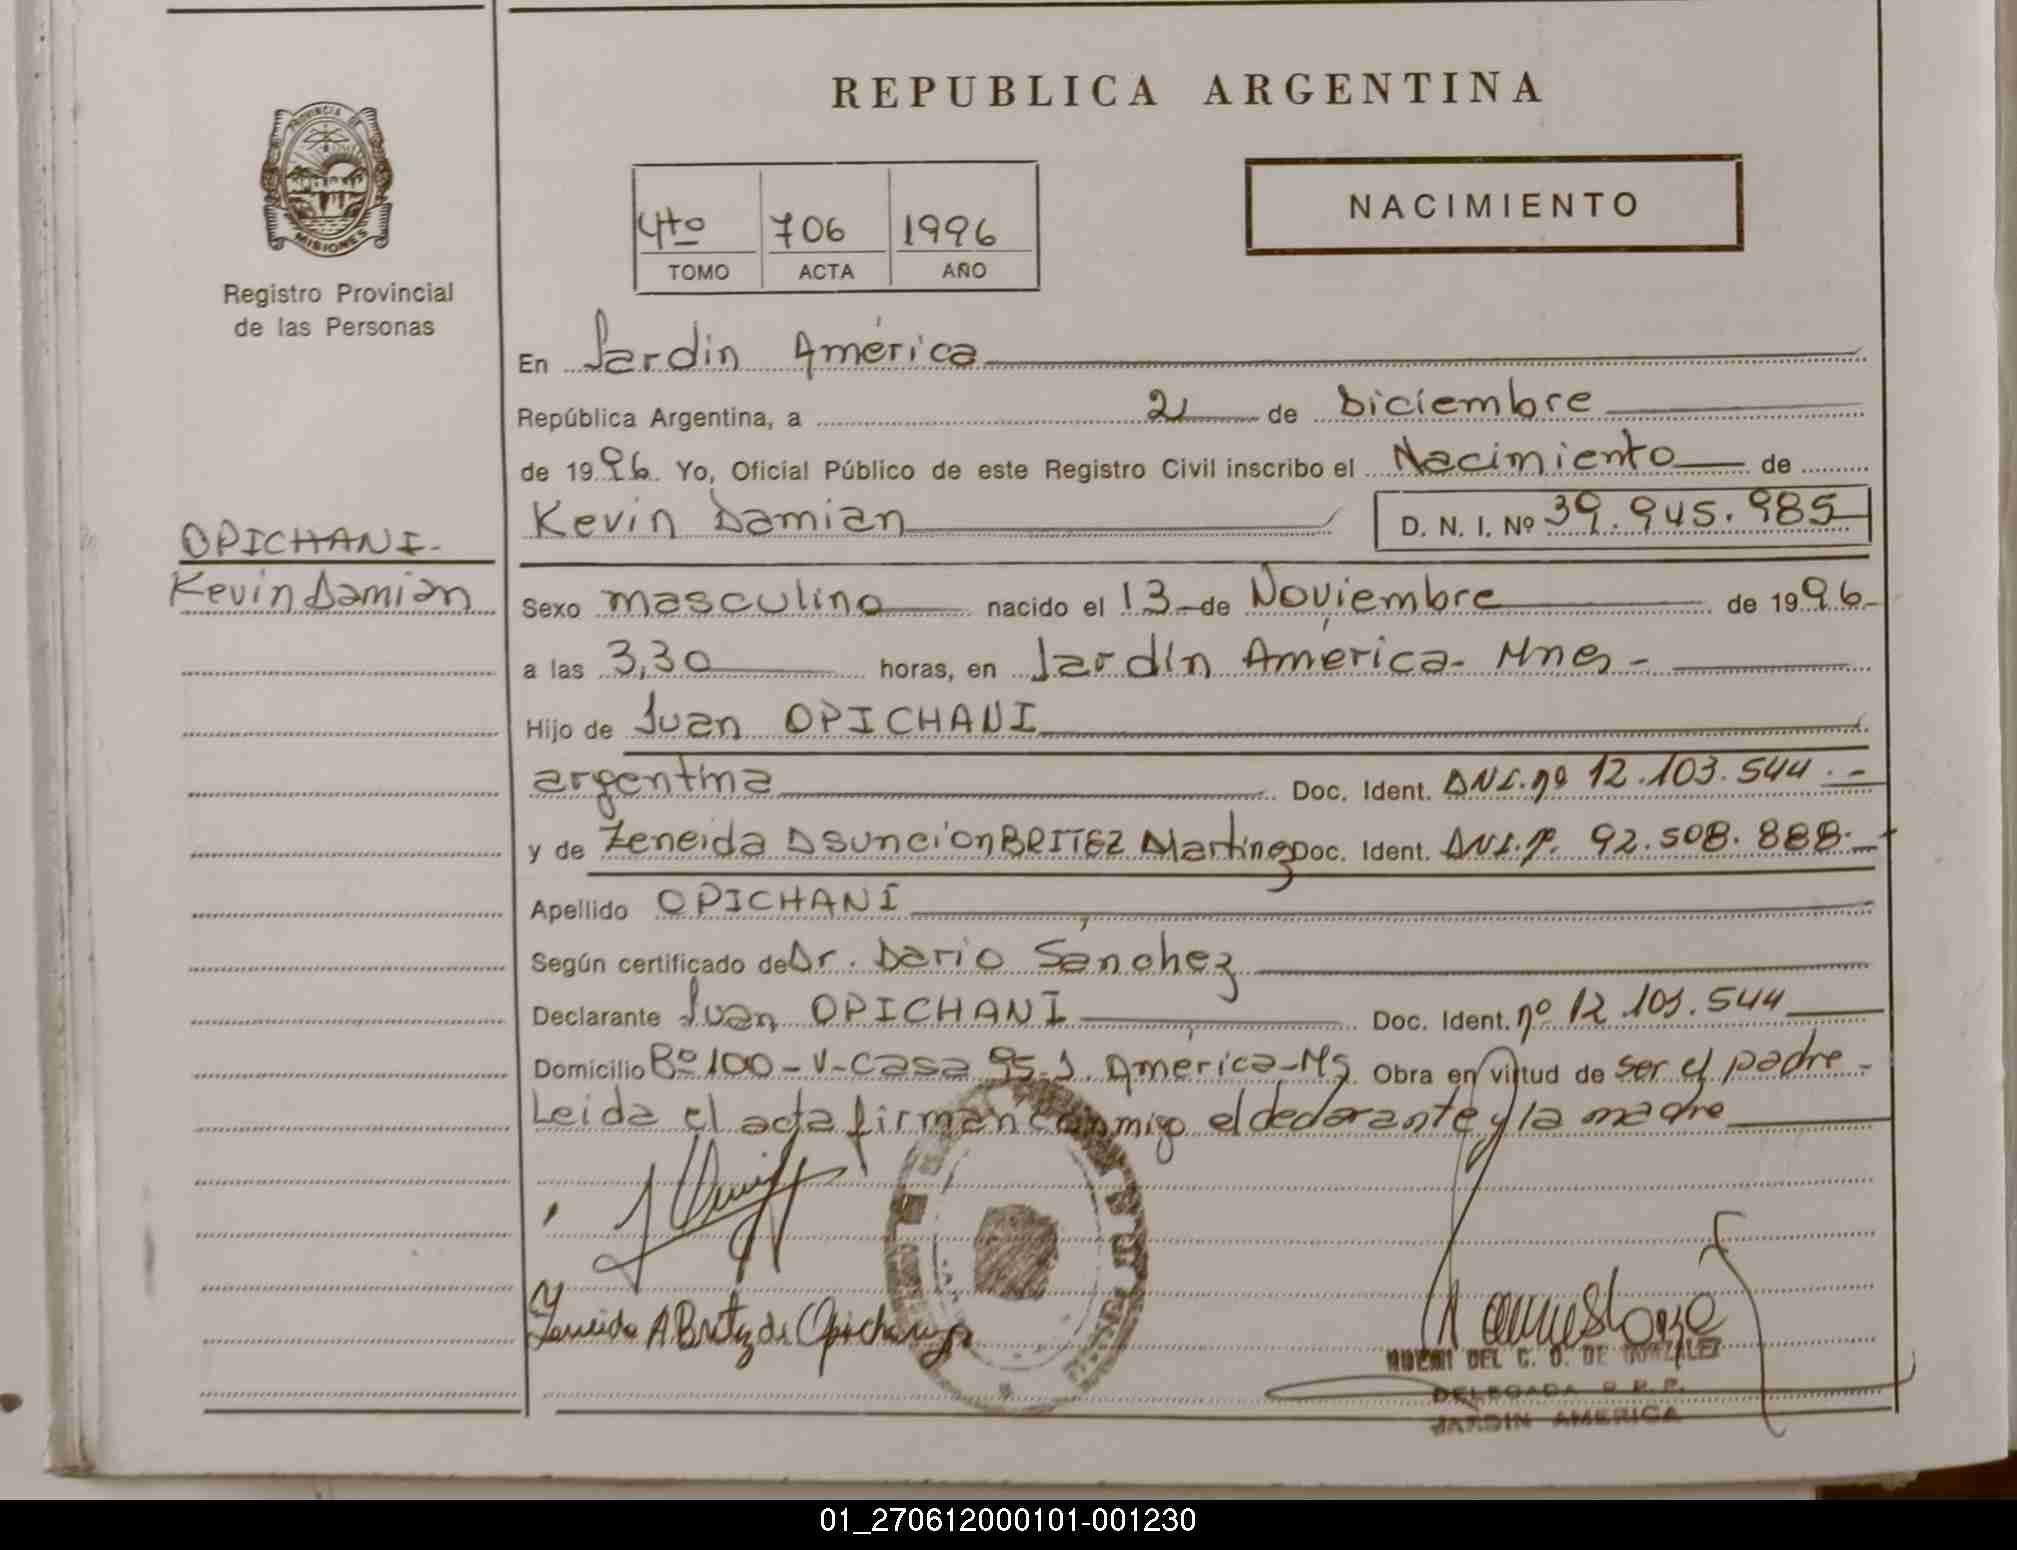 REPUBLICA ARGENTINA
PROVINCIA DE
MISIONES
Registro Provincial
de las Personas
4to 706 1996
TOMO ACTA AÑO
NACIMIENTO
En Jardin América
República Argentina, a 2 de Diciembre
de 1996 Yo, Oficial Público de este Registro Civil inscribo el Nacimiento de
Kevin Damian D. N. I. Nº 39.945.985
OPICHANI-
Kevin Damian
Sexo masculino nacido el 13 de Noviembre de 1996-
a las 3,30 horas, en Jardín América- Mnes-
Hijo de Juan OPICHANI
argentina Doc. Ident. DNI. nº 12.103.544.-
y de Zeneida Asuncion BRITEZ Martinez Doc. Ident. DNI. nº. 92.508.888.-
Apellido OPICHANI
Según certificado de Dr. Dario Sánchez
Declarante Juan OPICHANI Doc. Ident. nº 12.103.544
Domicilio Bº 100-V-Casa 95-J. América-Ms Obra en virtud de ser el padre-
Leida el acta firman conmigo el declarante y la madre
Zeneida A Britez de Opichany
NOEMI DEL C. O. DE GONZALEZ
DELEGADA R.P.P.
JARDIN AMERICA
01_270612000101-001230